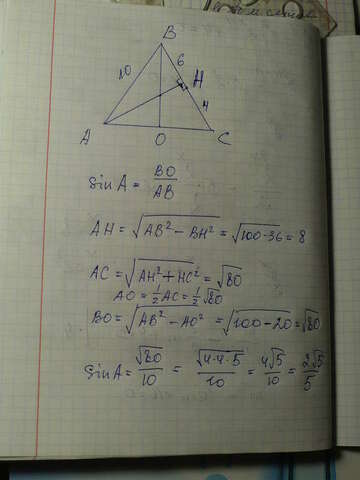 B
10
6
H
4
A
O
C
sin A = BO/AB
AH = √(AB² - BH²) = √(100-36) = 8
AC = √(AH² + HC²) = √80
AO = 1/2 AC = 1/2 √80
BO = √(AB² - AO²) = √(100-20) = √80
sin A = √80/10 = √(4·4·5)/10 = 4√5/10 = 2√5/5